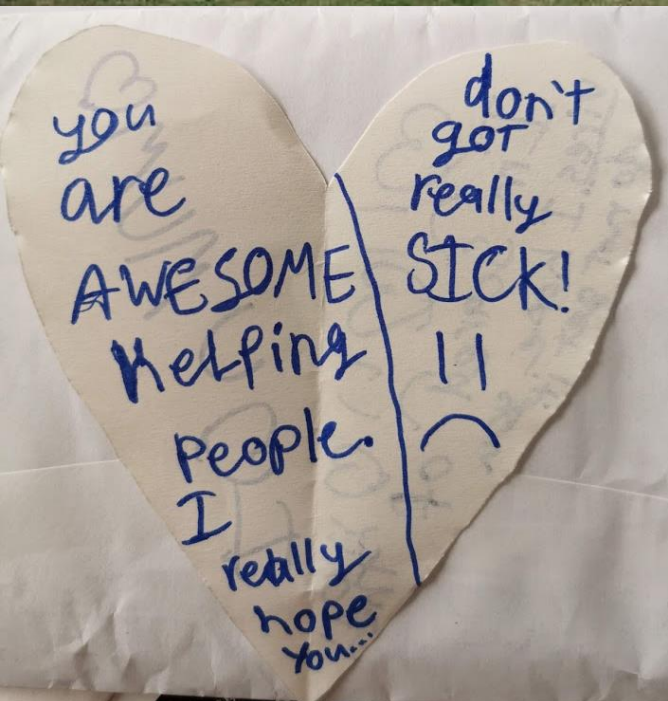 you
are
AWESOME
Helping
People.
I
really
hope
you...
don't
got
really
SICK!